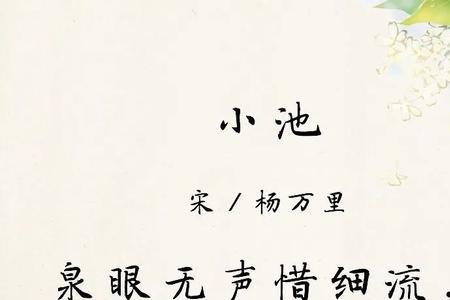 小池
宋/杨万里
泉眼无声惜细流，